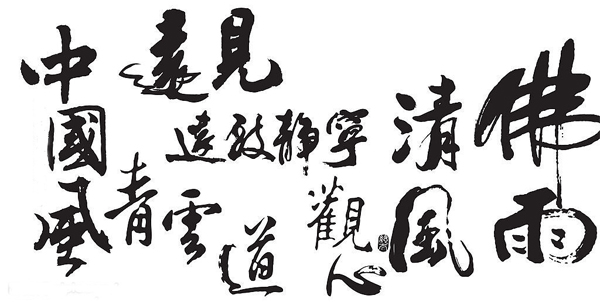 中國風
遠見
寧靜致遠
青雲
道
觀心
清風
佛雨